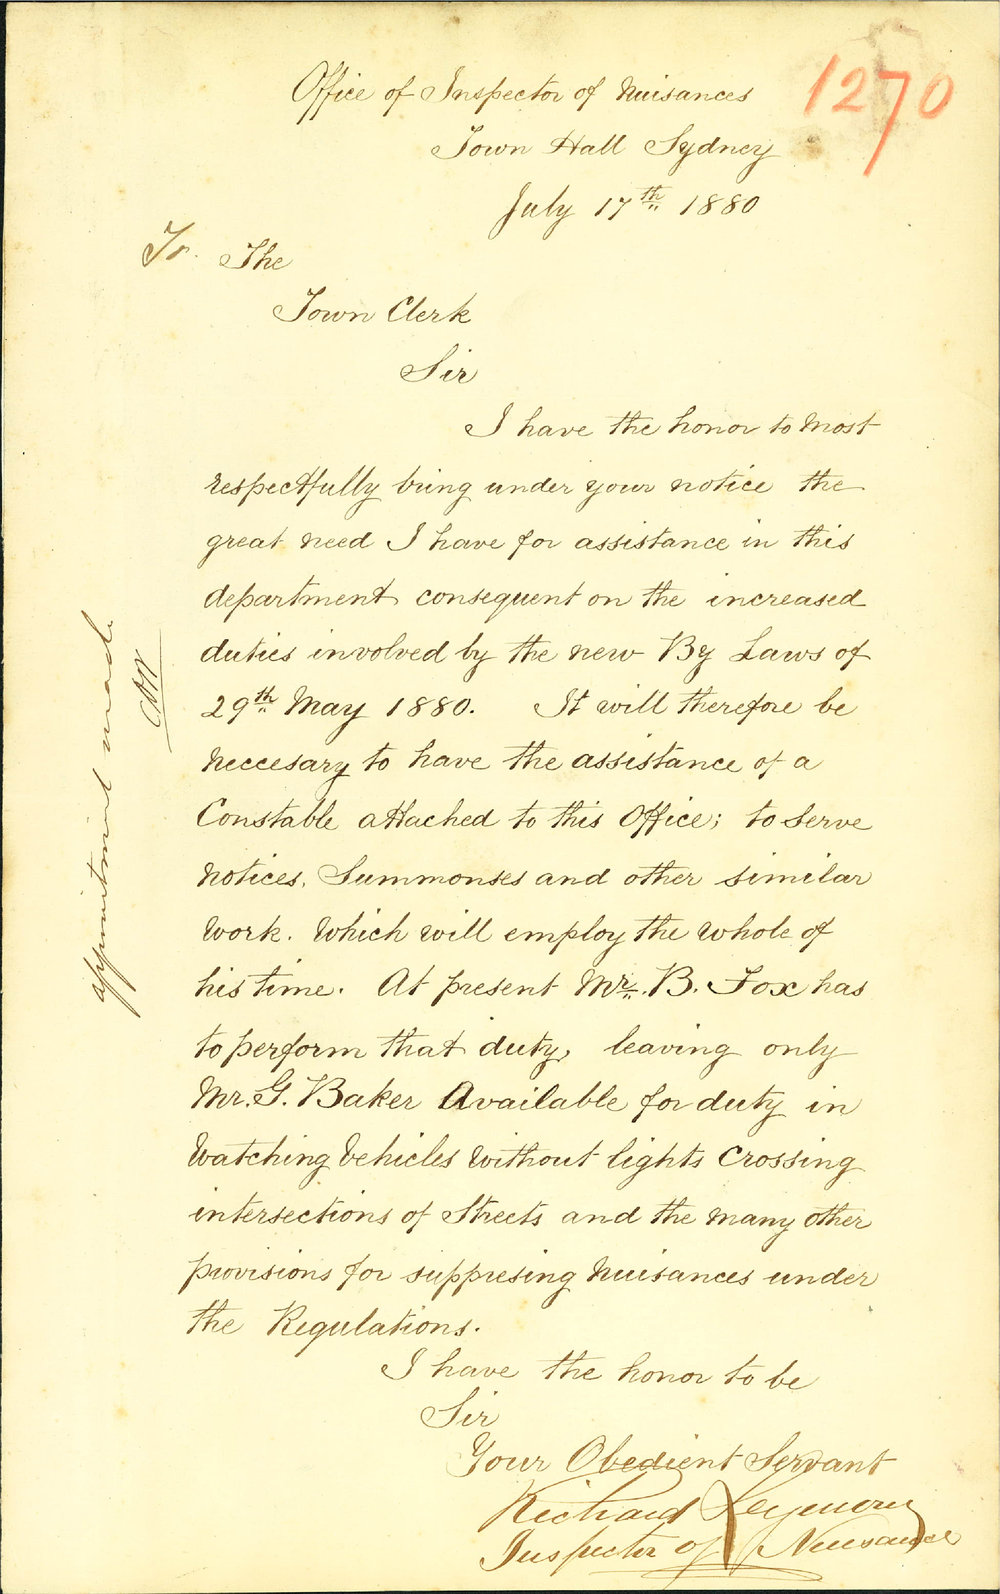 1270
Office of Inspector of Nuisances
Town Hall Sydney
July 17th 1880
To. The
Town Clerk
Sir
I have the honor to most
respectfully bring under your notice the
great need I have for assistance in this
department consequent on the increased
duties involved by the new By Laws of
29th May 1880. It will therefore be
neccesary to have the assistance of a
Constable attached to this Office; to serve
notices, Summonses and other similar
work. Which will employ the whole of
his time. At present Mr. B. Fox has
to perform that duty, leaving only
Mr. G. Baker Available for duty in
Watching Vehicles Without lights Crossing
intersections of Streets and the many other
provisions for suppresing Nuisances under
the Regulations.
I have the honor to be
Sir
Your Obedient Servant
Richard Seymour
Inspector of Nuisances
appointment made